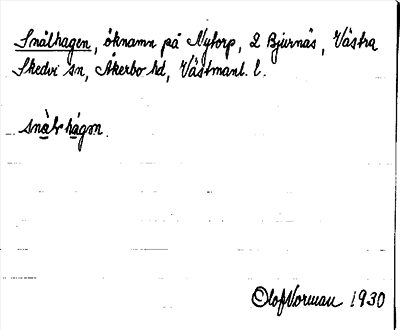 Snålhagen, öknamn på Nytorp, 2 Bjurnäs, Västra
Skedvi sn, Åkerbo hd, Västmanl. l.
Olof Norman 1930